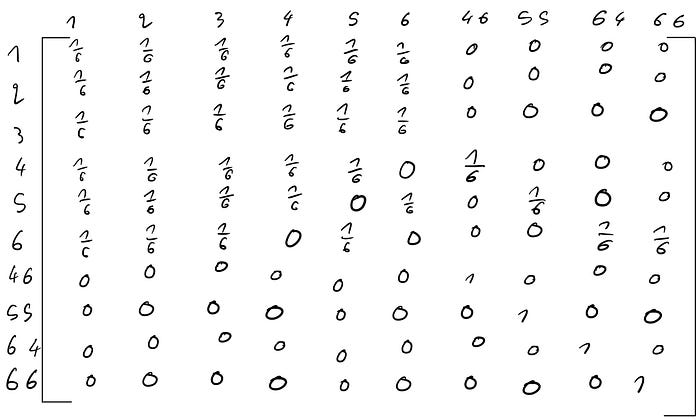 1 2 3 4 5 6 46 55 64 66
1 1/6 1/6 1/6 1/6 1/6 1/6 0 0 0 0
2 1/6 1/6 1/6 1/6 1/6 1/6 0 0 0 0
3 1/6 1/6 1/6 1/6 1/6 1/6 0 0 0 0
4 1/6 1/6 1/6 1/6 1/6 0 1/6 0 0 0
5 1/6 1/6 1/6 1/6 0 1/6 0 1/6 0 0
6 1/6 1/6 1/6 0 1/6 0 0 0 1/6 1/6
46 0 0 0 0 0 0 1 0 0 0
55 0 0 0 0 0 0 0 1 0 0
64 0 0 0 0 0 0 0 0 1 0
66 0 0 0 0 0 0 0 0 0 1